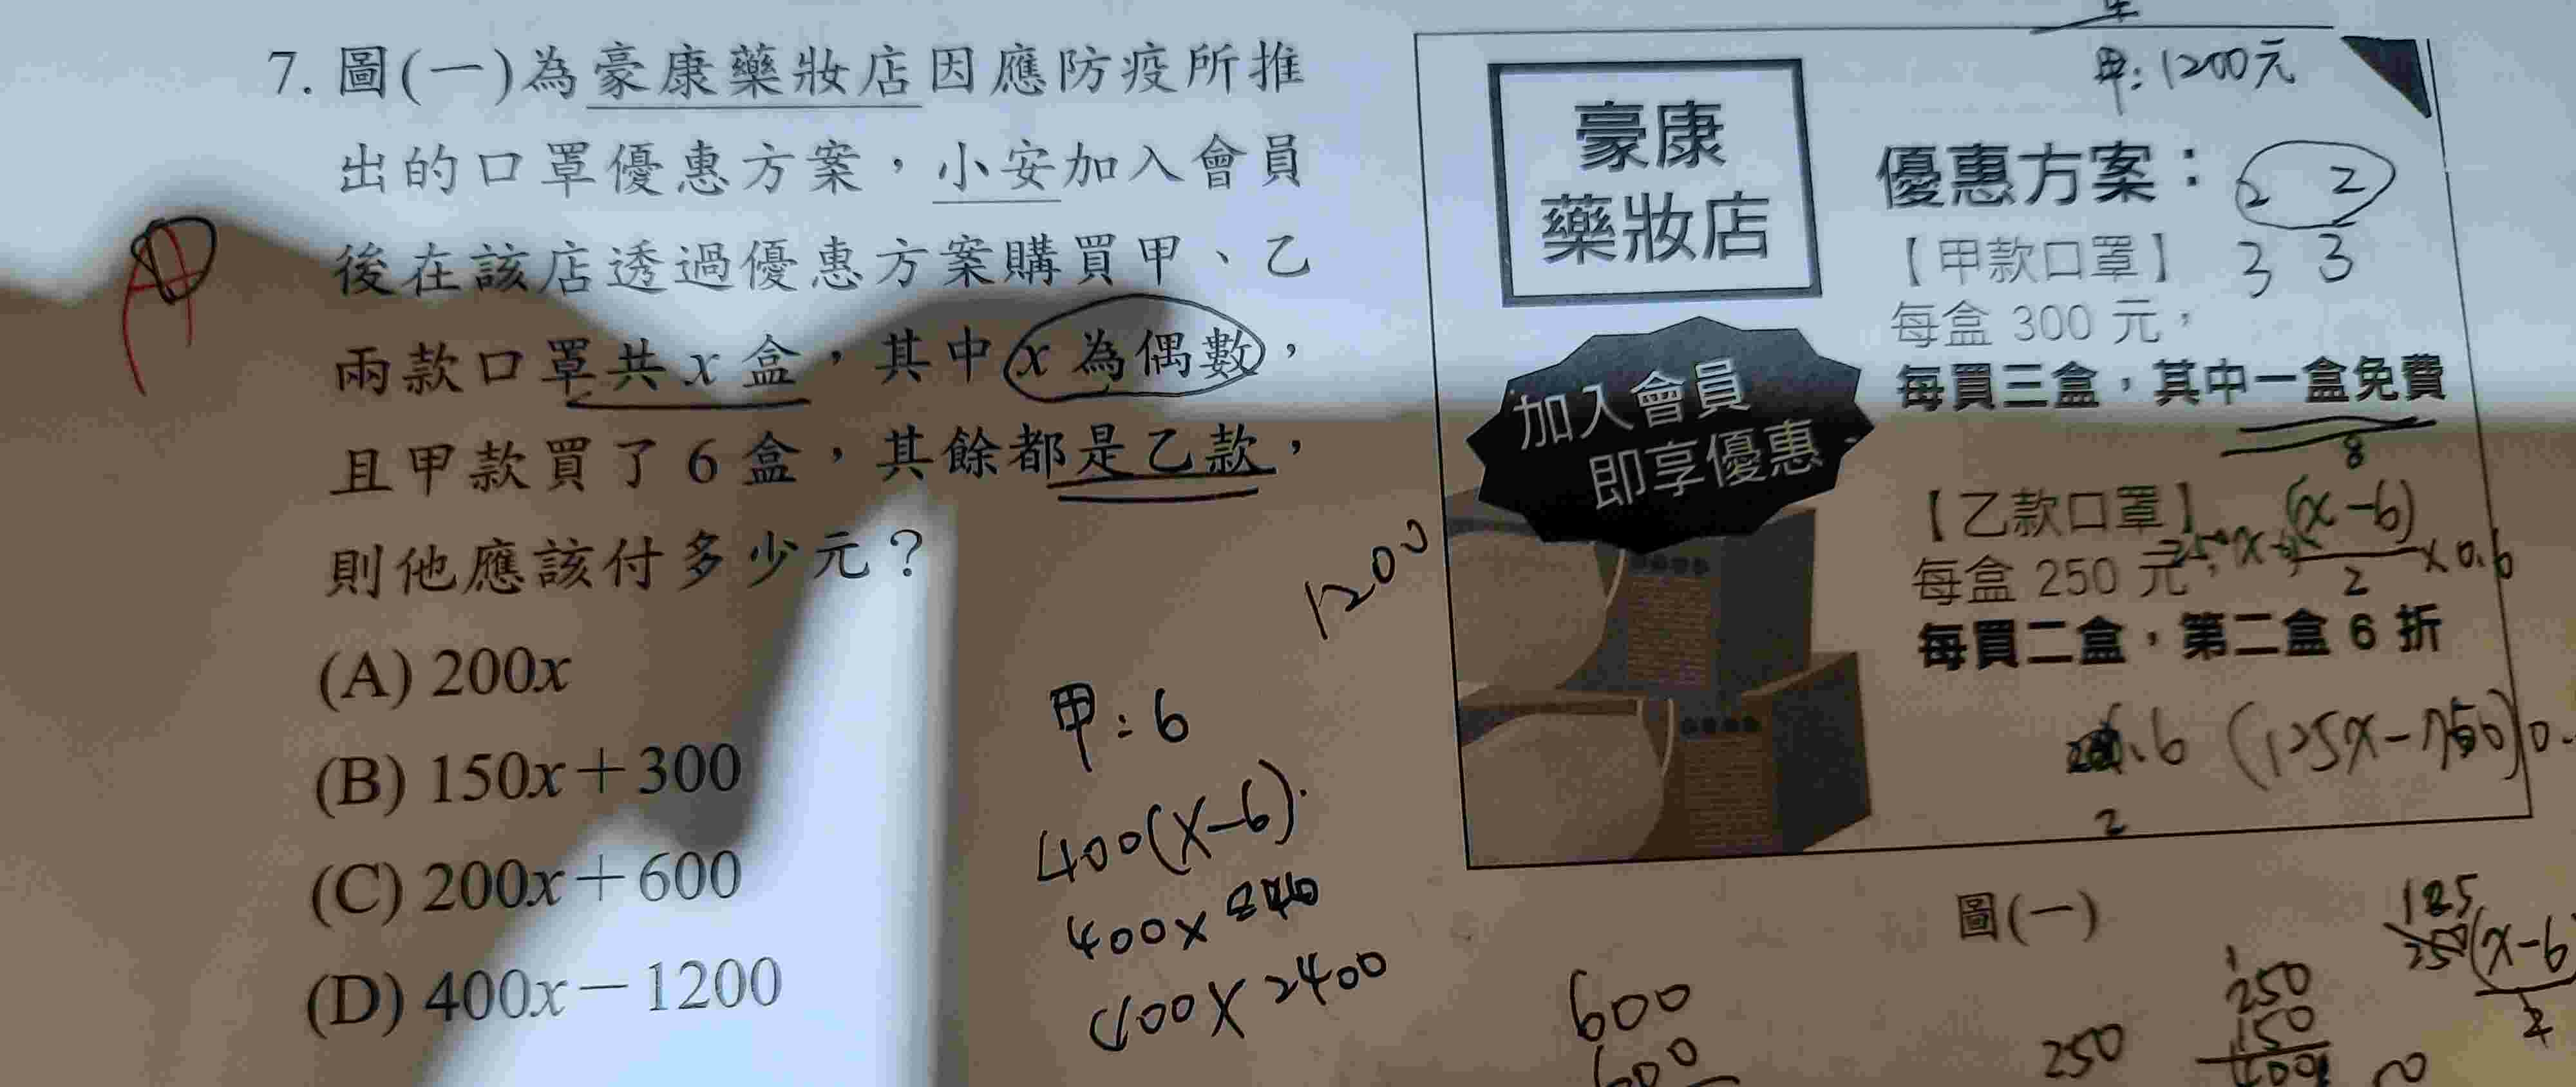 7. 圖(一)為豪康藥妝店因應防疫所推
出的口罩優惠方案，小安加入會員
後在該店透過優惠方案購買甲、乙
兩款口罩共 x 盒，其中 x 為偶數，
且甲款買了 6 盒，其餘都是乙款，
則他應該付多少元？
(A) 200x
(B) 150x＋300
(C) 200x＋600
(D) 400x－1200
甲：6
400(x-6)
400x
400x 2400
1200
豪康
藥妝店
加入會員
即享優惠
甲：1200元
優惠方案：
2 2
【甲款口罩】
3 3
每盒 300 元，
每買三盒，其中一盒免費
8
【乙款口罩】
(x-6)
每盒 250 元，
2
x 0.6
每買二盒，第二盒 6 折
2
圖(一)
600
600
250
250
150
125
250(x-6
2